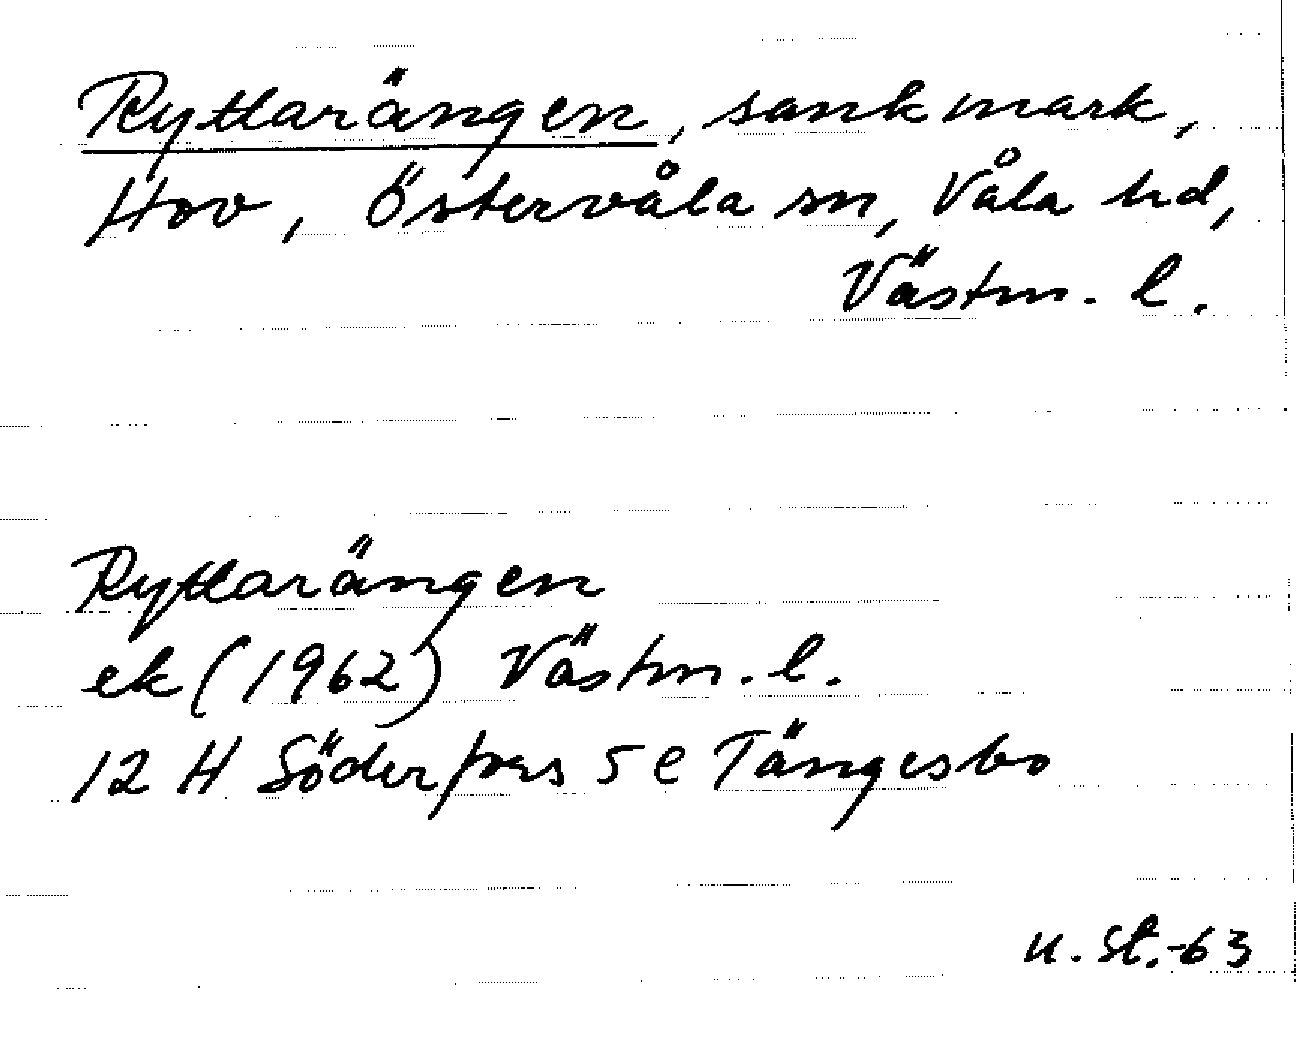 Ryttarängen, sankmark,
Hov, Östervåla sn, Våla hd,
Västm. l.
Ryttarängen
ek (1962) Västm. l.
12 H Söderfors 5 e Tängesbo
u. St.-63